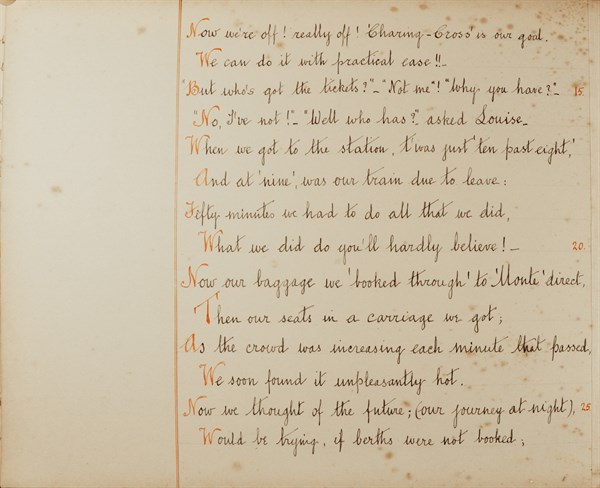 Now we're off! really off! 'Charing-Cross' is our goal.
We can do it with practical ease!!_
"But who's got the tickets?"_ "Not me"! "Why you have?"_ 15.
"No, I've not!"_ "Well who has?" asked Louise_
When we got to the station, t'was just 'ten past eight,'
And at 'nine', was our train due to leave:
Fifty minutes we had to do all that we did,
What we did do you'll hardly believe!_ 20.
Now our baggage we 'booked through' to 'Monte' direct,
Then our seats in a carriage we got;
As the crowd was increasing each minute that passed,
We soon found it unpleasantly hot.
Now we thought of the future; (our journey at night), 25
Would be trying, if berths were not booked;